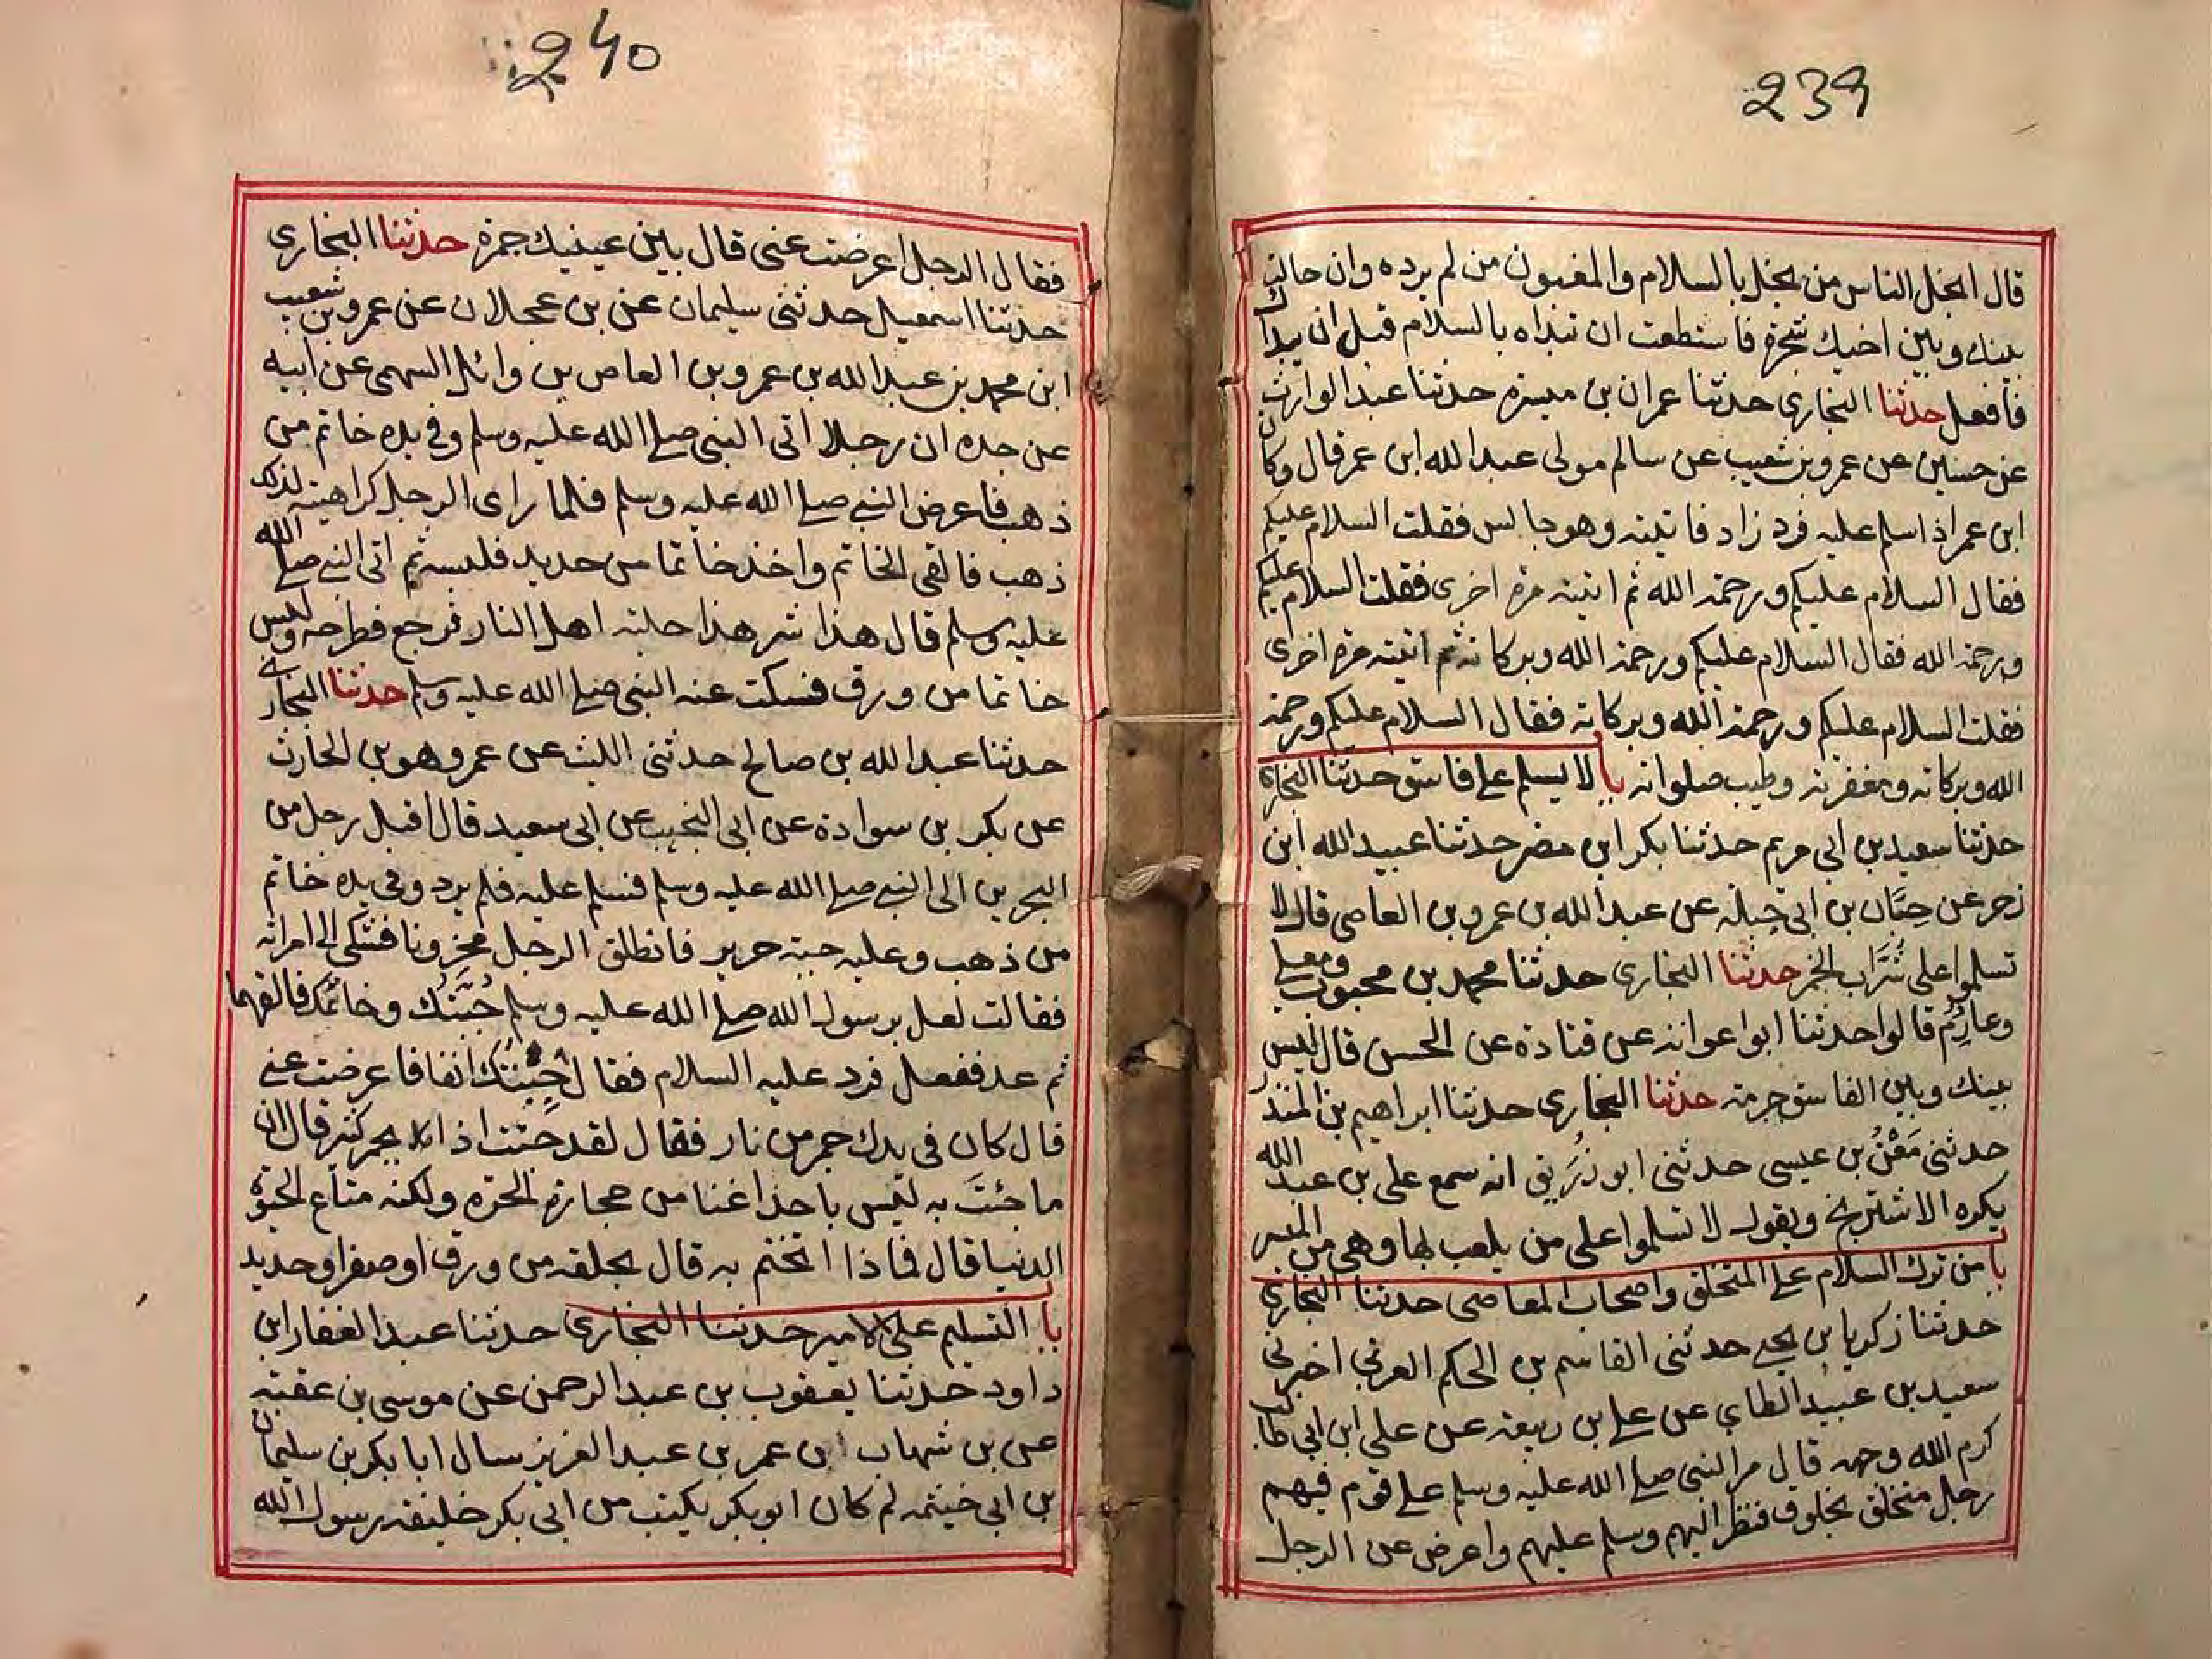 239
قال ابخل الناس من بخل بالسلام والمغبون من لم يرده وان حالت
بينك وبين اخيك شجرة فاستطعت ان تبداه بالسلام قبل ان يبداك
فافعل حدثنا البخارى حدثنا عمران بن ميسرة حدثنا عبد الوارث
عن حسين عن عمرو بن شعيب عن سالم مولى عبد الله ابن عمر قال وكان
ابن عمر اذ اسلم عليه فرد زاد فاتيته وهو جالس فقلت السلام عليكم
فقال السلام عليكم ورحمة الله ثم اتيته مرة اخرى فقلت السلام عليكم
ورحمة الله فقال السلام عليكم ورحمة الله وبركاته ثم اتيته مرة اخرى
فقلت السلام عليكم ورحمة الله وبركاته فقال السلام عليكم ورحمة
الله وبركاته ومغفرته وطيب صلواته با لا يسلم على فاسق حدثنا البخارى
حدثنا سعيد بن ابى مريم حدثنا بكر ابن مضر حدثنا عبيد الله ابن
زحر عن حِبَّان بن ابى جبلة عن عبد الله بن عمرو بن العاصى قال لا
تسلموا على شُرَّاب الخمر حدثنا البخارى حدثنا محمد بن محبوب ومعلى
وعارِمٌ قالوا حدثنا ابوا عوانة عن قتادة عن الحسن قال ليس
بينك وبين الفاسق حرمة حدثنا البخارى حدثنا ابراهيم بن المنذر
حدثنى مَعْنُ بن عيسى حدثنى ابو زُرَيق انه سمع على بن عبد الله
يكره الاشترنج ويقول لا تسلموا على من يلعب بها وهى من الميسر
با من ترك السلام على المتخلق واصحاب المعاصى حدثنا البخارى
حدثنا زكريا بن يحيى حدثنى القاسم بن الحكم العرنى اخبرنى
سعيد بن عبيد الطاى عن على بن ربيعة عن على ابن ابى طالب
كرم الله وجهه قال مر النبى صلى الله عليه وسلم على قوم فيهم
رجل متخلق بخلوق فنظر اليهم وسلم عليهم واعرض عن الرجل
240
فقال الرجل اعرضت عنى قال بين عينيك جمرة حدثنا البخارى
حدثنا اسمعيل حدثنى سليمان عن بن عجلان عن عمرو بن شعيب
ابن محمد بن عبد الله بن عمرو بن العاص بن وائل السهمى عن ابيه
عن جده ان رجلا اتى النبى صلى الله عليه وسلم وفى يده خاتم من
ذهب فاعرض النبى صلى الله عليه وسلم فلما راى الرجل كراهيته لذلك
ذهب فالقى الخاتم واخذ خاتما من حديد فلبسه ثم اتى النبى صلى الله
عليه وسلم قال هذا شر هذا حلية اهل النار فرجع فطرحه ولبس
خاتما من ورق فسكت عنه النبى صلى الله عليه وسلم حدثنا البخارى
حدثنا عبد الله بن صالح حدثنى الليث عن عمرو هو بن الحارث
عن بكر بن سوادة عن ابى النجيب عن ابى سعيد قال اقبل رجل من
البحرين الى النبى صلى الله عليه وسلم فسلم عليه فلم يرد وفى يده خاتم
من ذهب وعليه جبة حرير فانطلق الرجل محزونا فشكى الى امراته
فقالت لعل برسول الله صلى الله عليه وسلم جُبَّتُك وخاتمك فالقهما
ثم عد ففعل فرد عليه السلام فقال جيتك انفا فاعرضت عنى
قال كان فى يدك جمر من نار فقال لقد جئت اذا بجمر كثير قال ان
ما جئتَ به ليس باحد اغنا من حجارة الحرة ولكنه متاع الحيوة
الدنيا قال فماذا اتختم به قال بحلقة من ورق او صفر او حديد
با التسليم على الامير حدثنا البخارى حدثنا عبد الغفار ابن
داود حدثنا يعقوب بن عبد الرحمن عن موسى بن عقبة
عن بن شهاب ان عمر بن عبد العزيز سال ابا بكر بن سليمان
بن ابى خيثمة لم كان ابو بكر يكتب من ابى بكر خليفة رسول الله